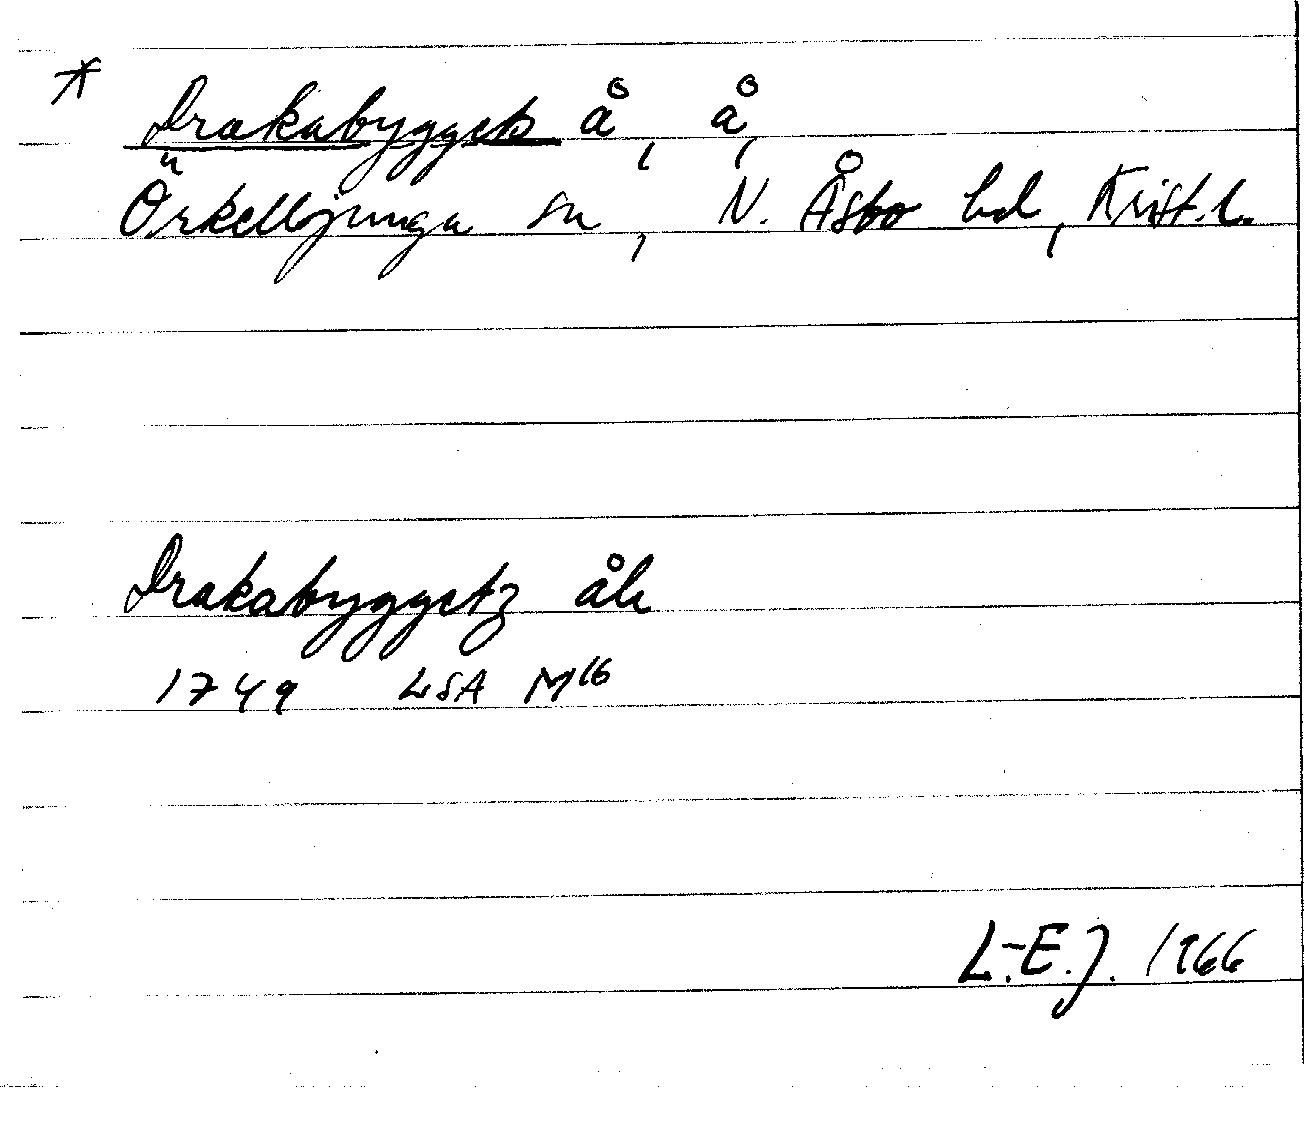 * Drakabyggets å, å,
Örkelljunga sn, N. Åsbo hd, Krist. l.
Drakabyggetz åh
1749 LSA M16
L.-E.J. 1966